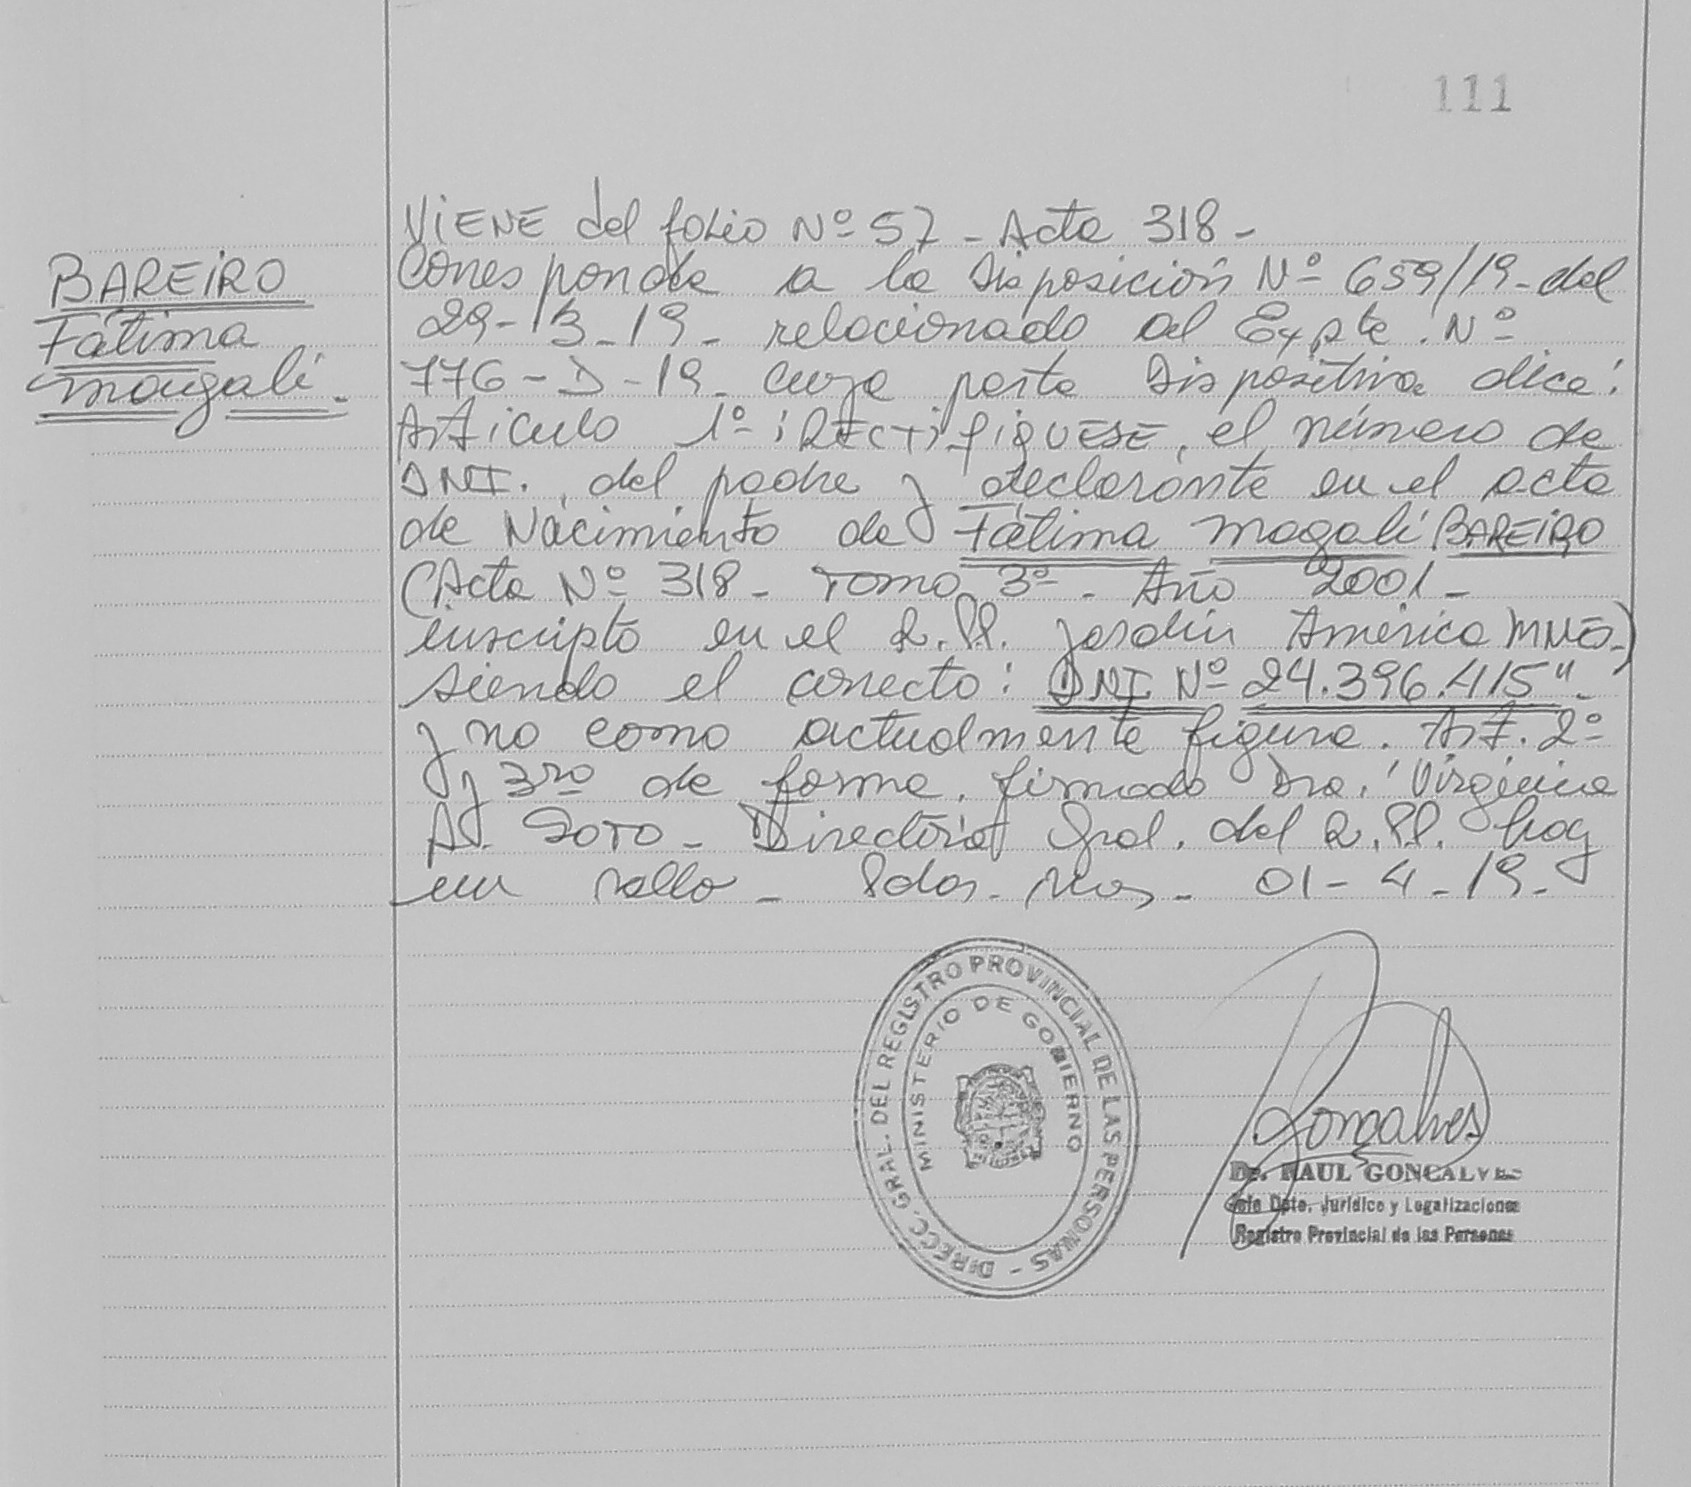 111
BAREIRO
Fátima
Magalí.
VIENE del folio Nº 57 - Acta 318 -
Corresponde a la Disposición Nº 659/19 - del
29-3-19 - relacionado al Expte. Nº
776-D-19 - cuya parte Dispositiva dice:
Artículo 1º: RECTIFIQUESE, el número de
DNI. del padre y declarante en el acta
de Nacimiento de Fátima Magalí BAREIRO
(Acta Nº 318 - Tomo 3º - Año 2001 -
inscripto en el R.PP. Jardín América MNES.)
siendo el correcto: DNI Nº 24.396.415" -
y no como actualmente figura. Art. 2º
y 3ro de forma. firmado Dra. Virginia
A. SOTO - Directora Gral. del R.PP. hay
un sello - Pdas. Mnes - 01-4-19 -
DIRECC. GRAL. DEL REGISTRO PROVINCIAL DE LAS PERSONAS -
MINISTERIO DE GOBIERNO
Goncalves
Dr. RAUL GONCALVES
Jefe Dpto. Jurídico y Legalizaciones
Registro Provincial de las Personas